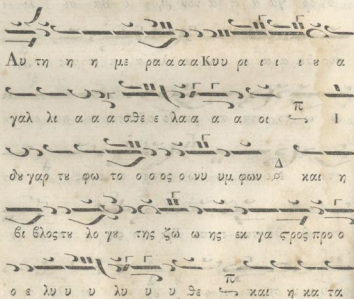 Αυ τη η η με ρα α α α Κυ υ ρι ι ι ι ȣ α
γαλ λι α α α σθε ε λα α α α οι π Ι
δȣ γαρ τȣ φω το ο ο ος ο νυ υμ φων Δ και η
βι βλος τȣ λο γȣ της ζω ω ης εκ γα ϛρος προ ο
ο ε λυ υ υ λυ υ υ θε π και η κα τα